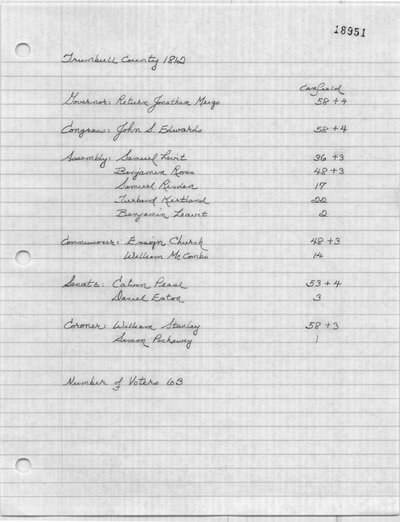 18951
Trumbull County 1812
Canfield
Governor: Return Jonathan Meigs 58 + 4
Congress: John S. Edwards 58 + 4
Assembly: Samuel Levit 36 + 3
Benjamin Ross 48 + 3
Samuel Risden 17
Turband Kirtland 22
Benjamin Leavit 2
Commissioner: Ensign Church 48 + 3
William McCombs 14
Senate: Calvin Pease 53 + 4
Daniel Eaton 3
Coroner: William Stanley 58 + 3
Simon 1
Number of Voters 63